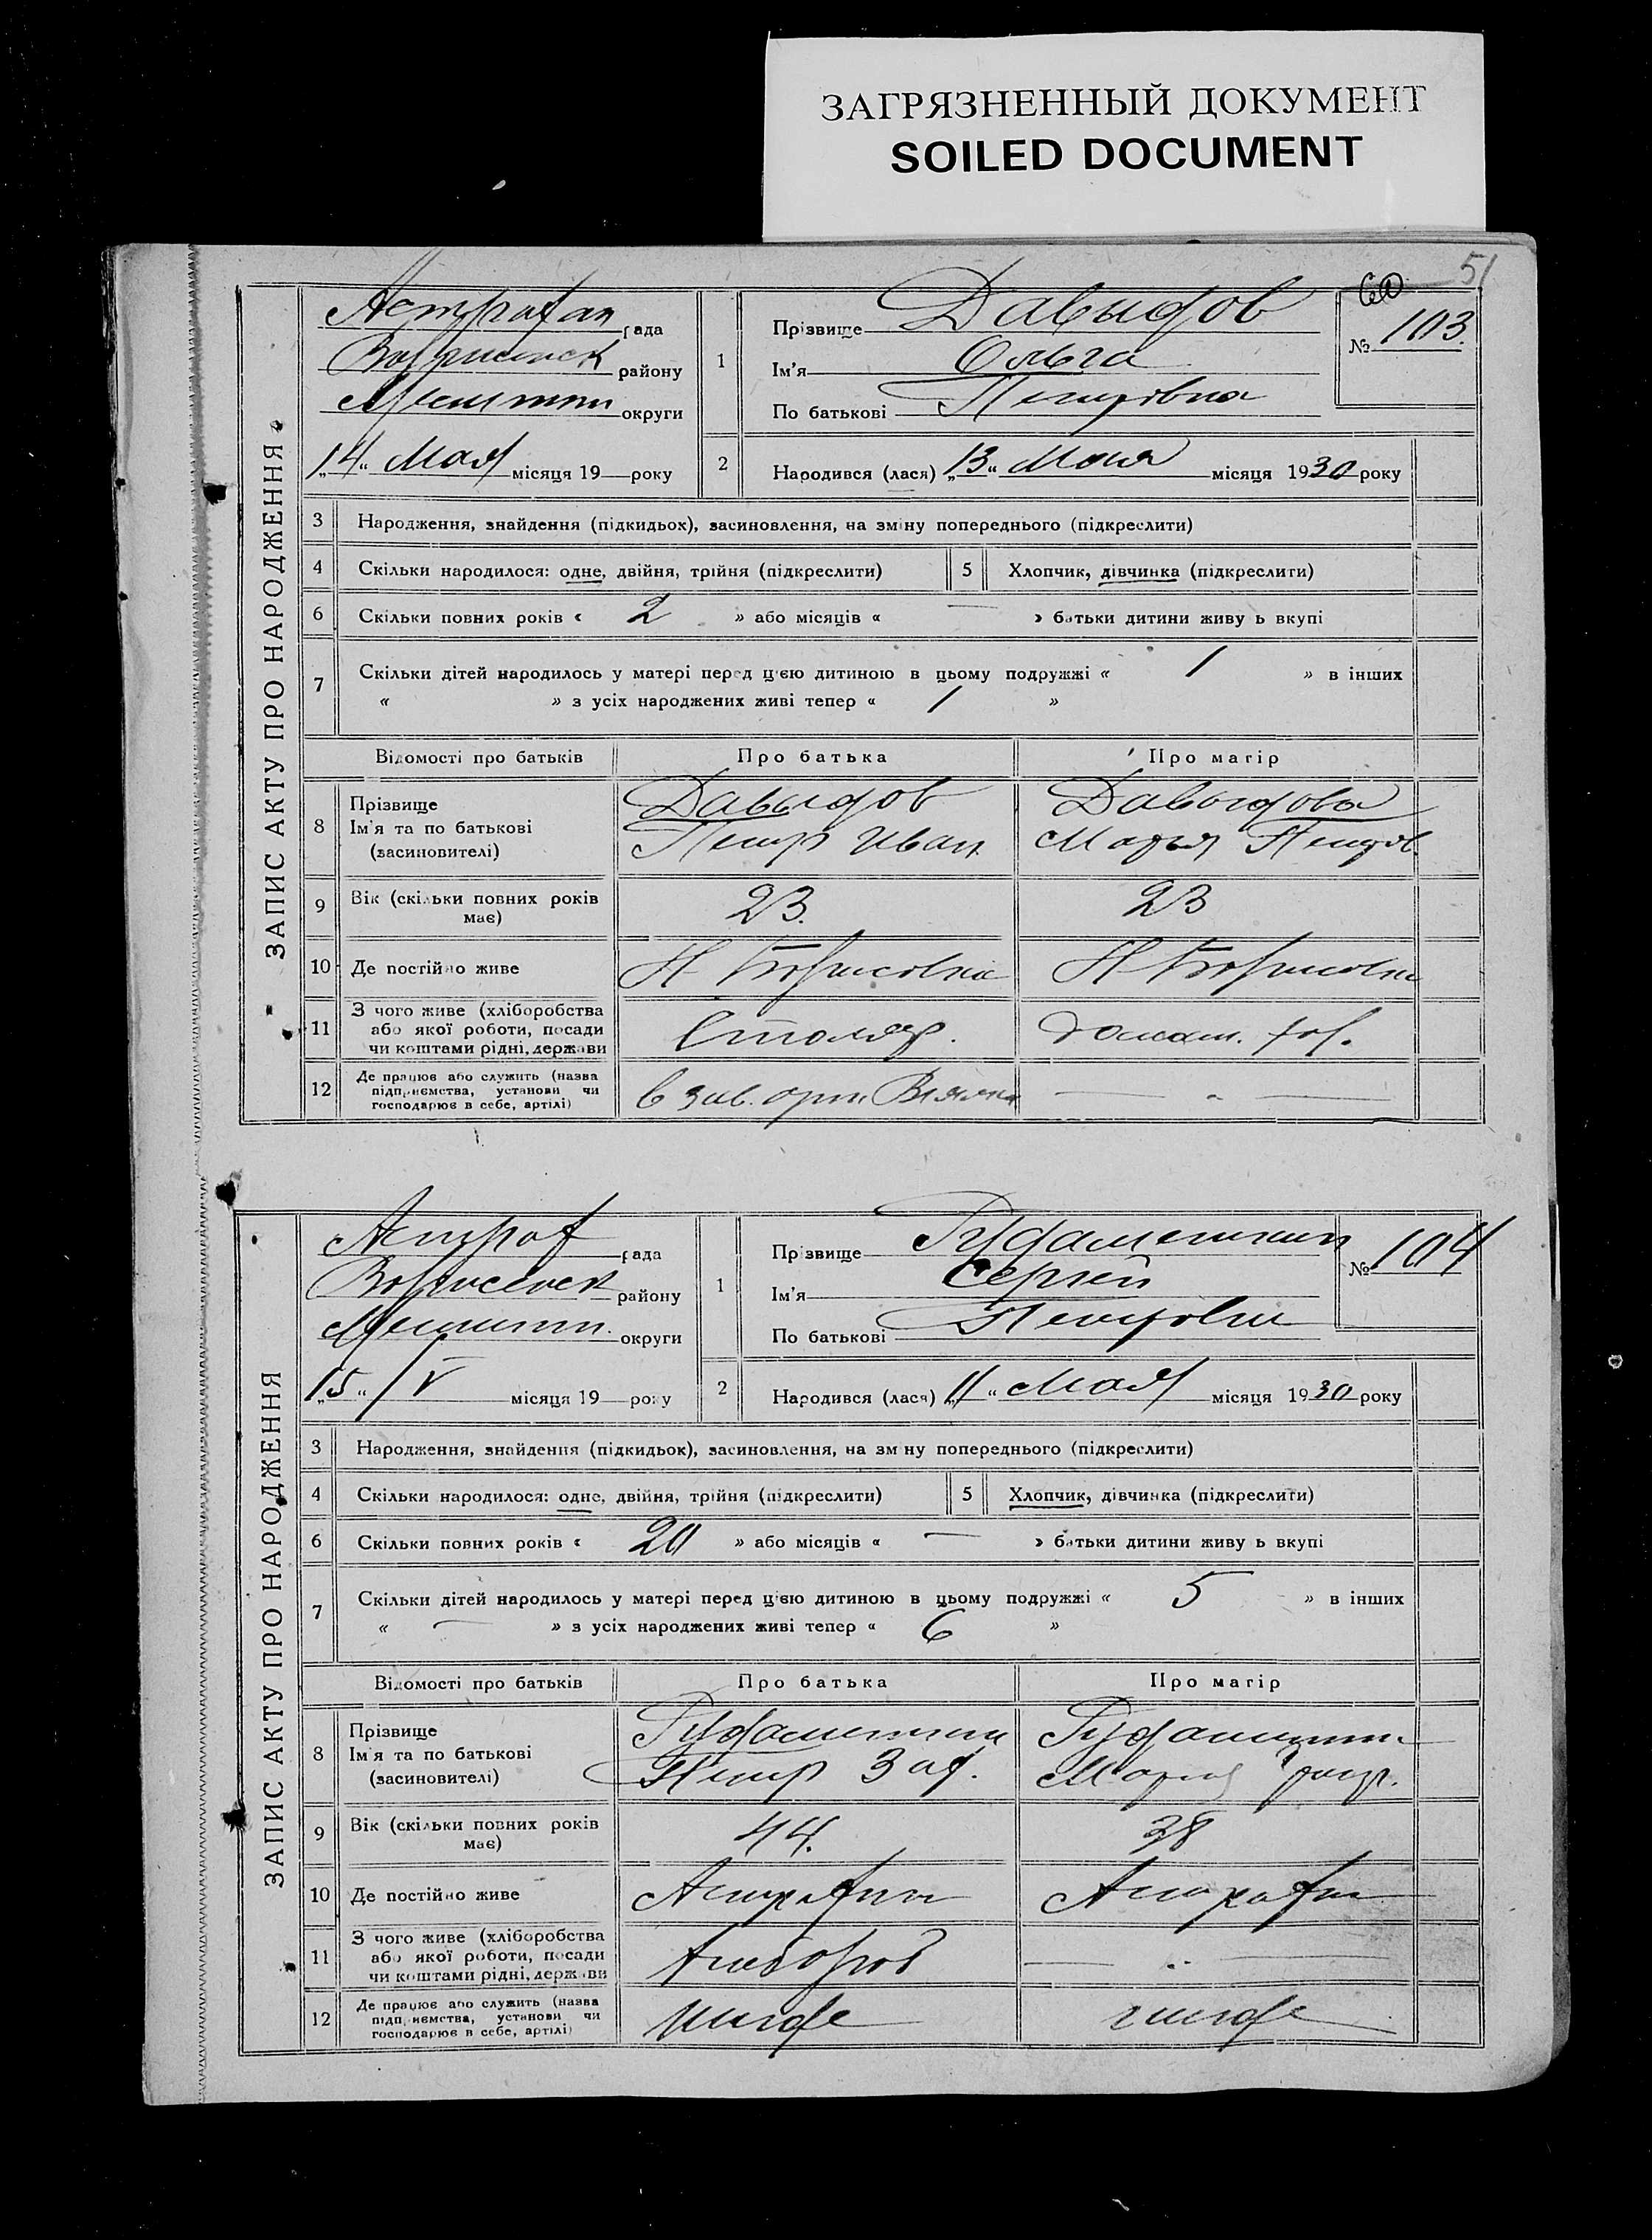 ЗАГРЯЗНЕННЫЙ ДОКУМЕНТ
SOILED DOCUMENT
51
ЗАПИС АКТУ ПРО НАРОДЖЕННЯ
Астрахан рада
району
округи
„14“ Мая місяця 19 року
1
Прізвище Давыдов
Ім'я Ольга
По батькові Петрівна
№ 103.
2
Народився (лася) „13“ Мая місяця 1930 року
3 Народження, знайдення (підкидьок), засиновлення, на зміну попереднього (підкреслити)
4 Скільки народилося: одне, двійня, трійня (підкреслити)
5 Хлопчик, дівчинка (підкреслити)
6 Скільки повних років « 2 » або місяців « — » батьки дитини живуть вкупі
7 Скільки дітей народилось у матері перед цією дитиною в цьому подружжі « 1 » в інших
« » з усіх народжених живі тепер « 1 »
Відомості про батьків Про батька Про матір
8 Прізвище Давыдов Давыдова
Ім'я та по батькові Петр Иван Марья Петров.
(засиновителі)
9 Вік (скільки повних років має) 23. 23
10 Де постійно живе Н Борисовка Н Борисовка
11 З чого живе (хліборобства
або якої роботи, посади Столяр.
чи коштами рідні, держави
12 Де працює або служить (назва
підприємства, установи чи в зав.
господарює в себе, артілі)
ЗАПИС АКТУ ПРО НАРОДЖЕННЯ
Астрах рада
району
округи
„15“ /V місяця 19 року
1
Прізвище
Ім'я Сергей
По батькові Петрович
№ 104
2
Народився (лася) „11“ Мая місяця 1930 року
3 Народження, знайдення (підкидьок), засиновлення, на зміну попереднього (підкреслити)
4 Скільки народилося: одне, двійня, трійня (підкреслити)
5 Хлопчик, дівчинка (підкреслити)
6 Скільки повних років « 20 » або місяців « — » батьки дитини живуть вкупі
7 Скільки дітей народилось у матері перед цією дитиною в цьому подружжі « 5 » в інших
« — » з усіх народжених живі тепер « 6 »
Відомості про батьків Про батька Про матір
8 Прізвище
Ім'я та по батькові Петр Зах. Мария
(засиновителі)
9 Вік (скільки повних років має) 44. 38
10 Де постійно живе Астрахан Астрахан
11 З чого живе (хліборобства
або якої роботи, посади
чи коштами рідні, держави
12 Де працює або служить (назва
підприємства, установи чи
господарює в себе, артілі)